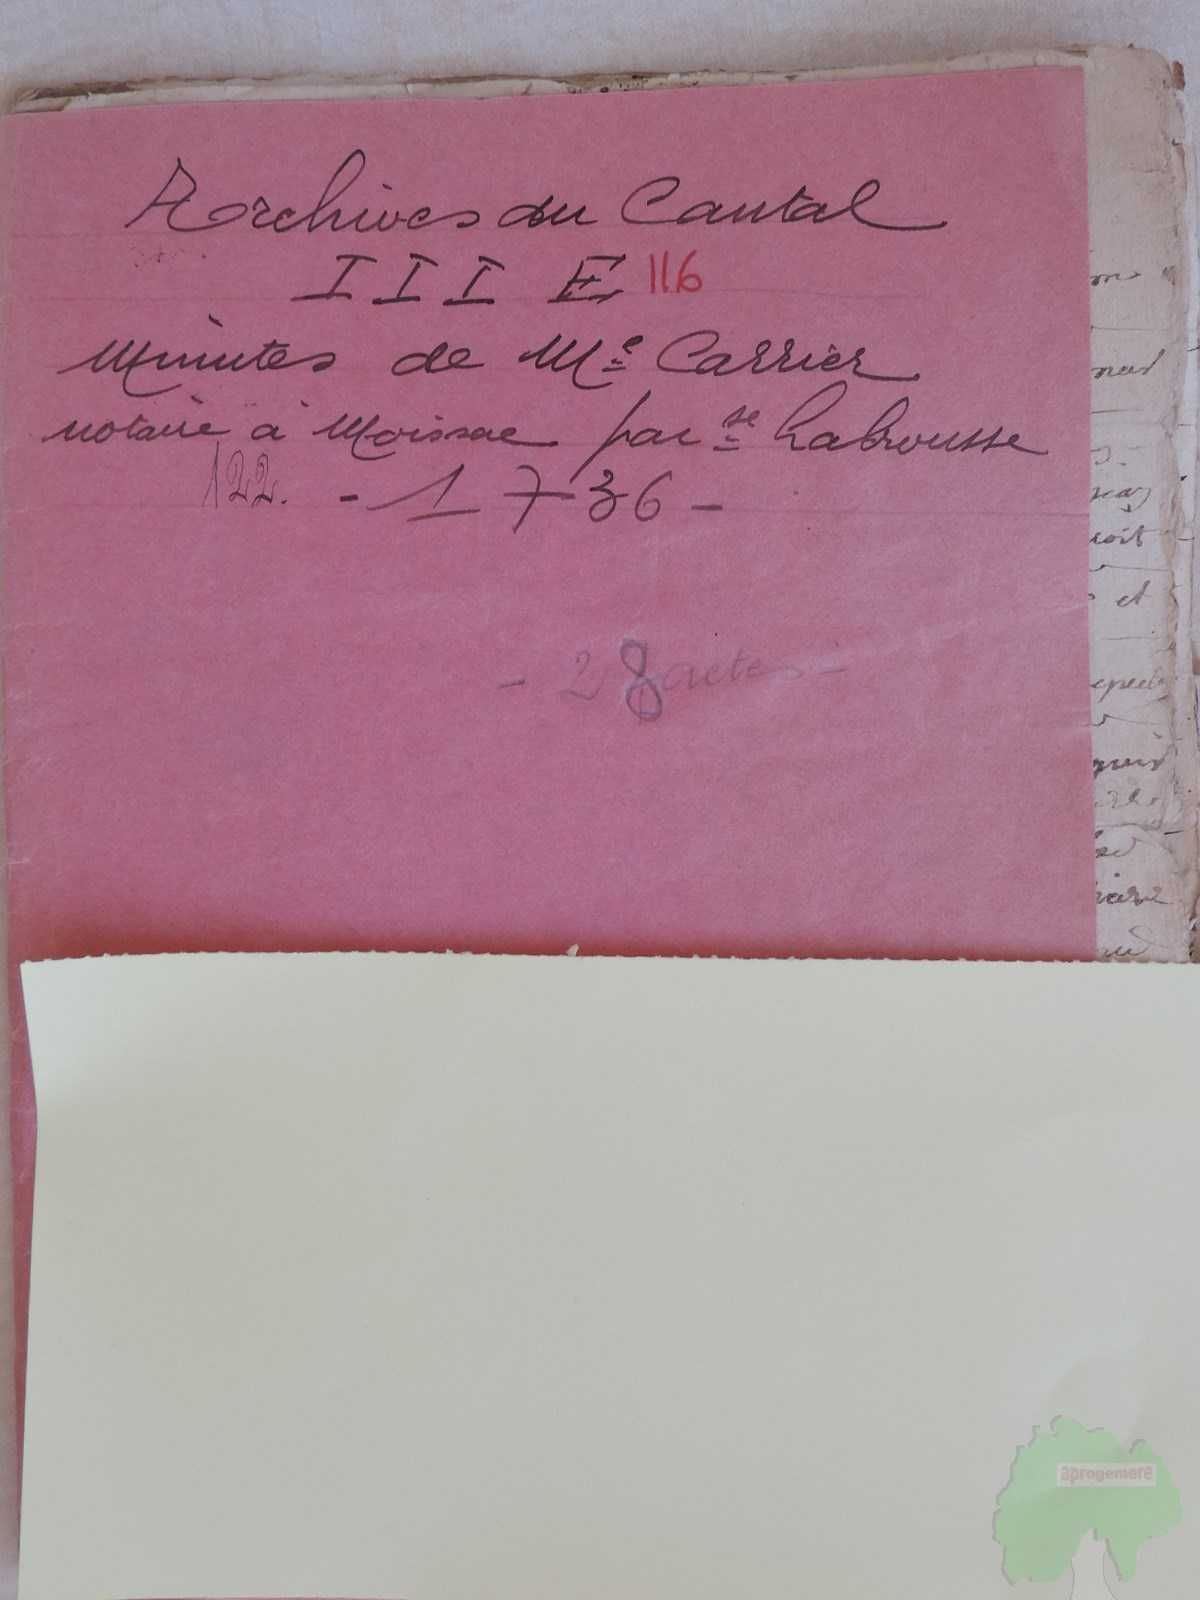 Archives du Cantal
III E 116
Minutes de Me Carrier
notaire à Moissac par se Labrousse
122. - 1736 -
- 28 actes -
oit
et
aprogemere